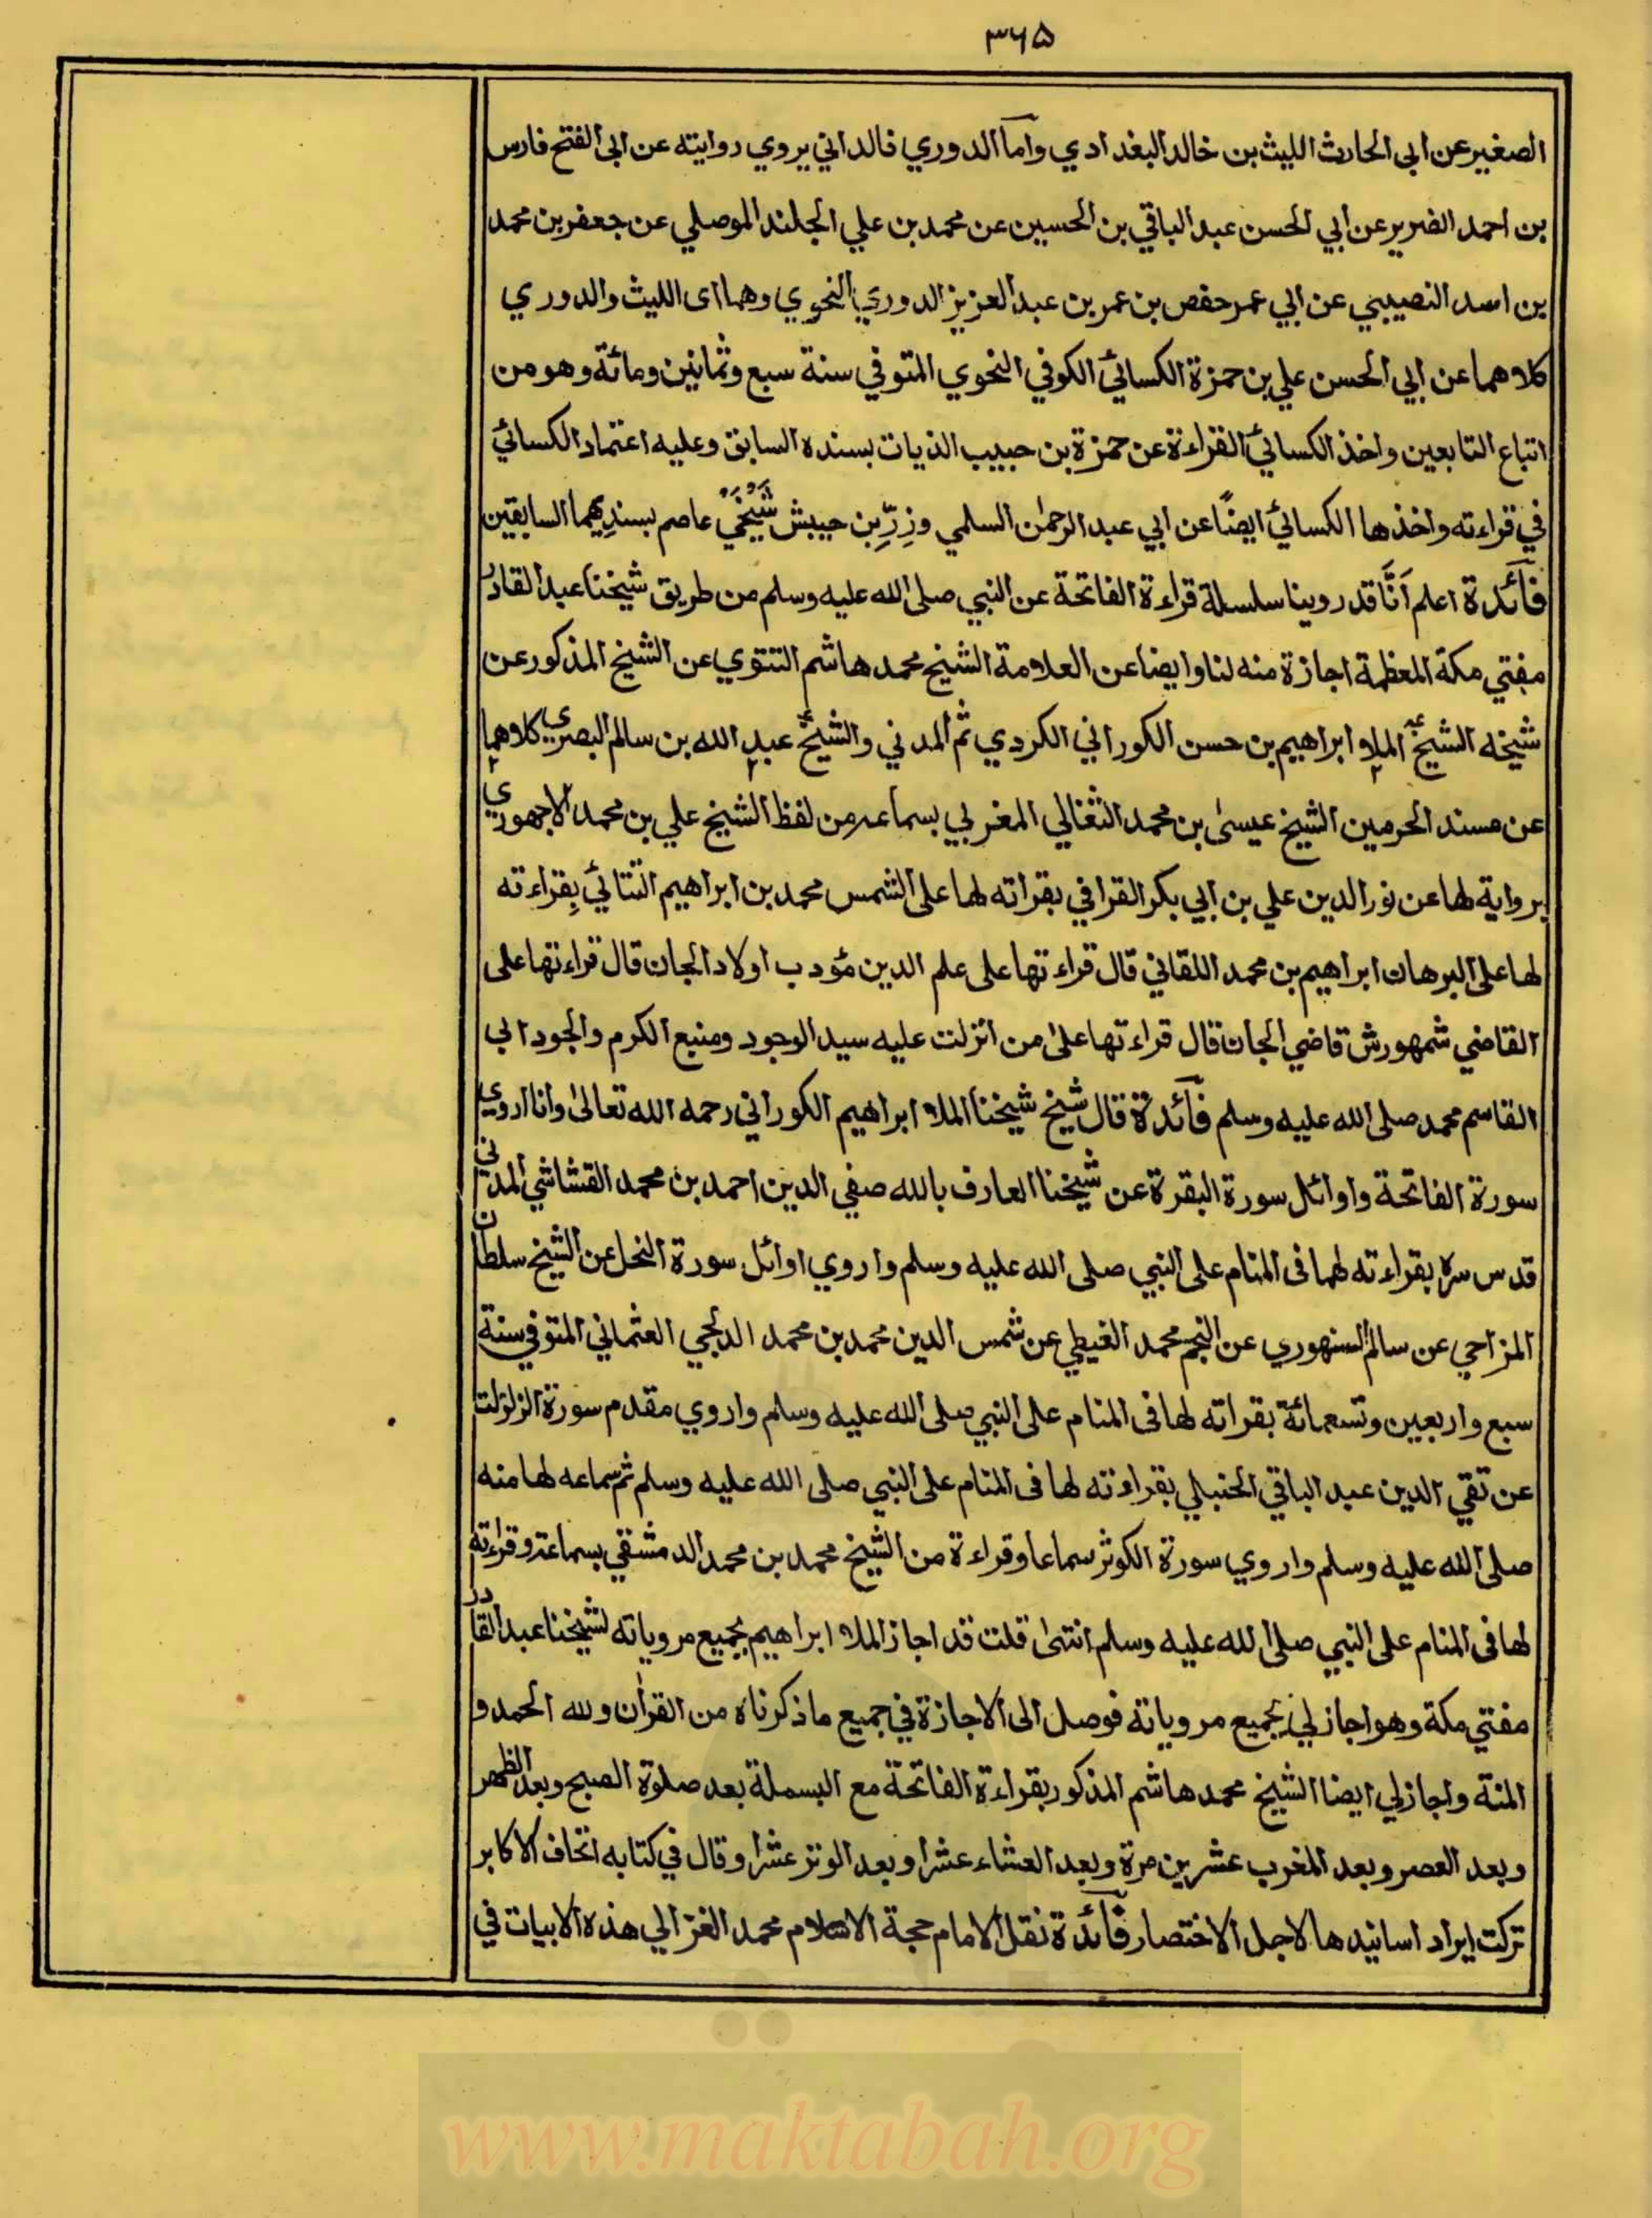 ۳۶۵
الصغير عن ابى الحارث الليث بن خالد البغدادي واما الدوري فالداني يروي روايته عن ابى الفتح فارس
بن احمد الضرير عن ابي الحسن عبد الباقي بن الحسين عن محمد بن علي الجلند الموصلي عن جعفر بن محمد
بن اسد النصيبي عن ابي عمر حفص بن عمر بن عبد العزيز الدوري النحوي وهما اى الليث والدوري
كلاهما عن ابي الحسن علي بن حمزة الكسائي الكوفي النحوي المتوفي سنة سبع وثمانين ومائة وهو من
اتباع التابعين واخذ الكسائي القراءة عن حمزة بن حبيب الذيات بسنده السابق وعليه اعتماد الكسائي
في قراءته واخذها الكسائي ايضًا عن ابي عبد الرحمٰن السلمي وزِرِّ بن حبيش شَيْخَيْ عاصم بسنديهما السابقين
فآئدة اعلم اَنَّا قد روينا سلسلة قراءة الفاتحة عن النبي صلى الله عليه وسلم من طريق شيخنا عبد القادر
مفتي مكة المعظمة اجازة منه لنا وايضا عن العلامة الشيخ محمد هاشم التتوي عن الشيخ المذكور عن
شيخه الشيخ الملا ابراهيم بن حسن الكوراني الكردي ثم المدني والشيخ عبد الله بن سالم البصري كلاهما
عن مسند الحرمين الشيخ عيسىٰ بن محمد الثغالي المغربي بسماعه من لفظ الشيخ علي بن محمد الاجهوري
برواية لها عن نور الدين علي بن ابي بكر القرافي بقراته لها على الشمس محمد بن ابراهيم التتائي بِقراءته
لها على البرهان ابراهيم بن محمد اللقاني قال قراءتها على علم الدين مؤدب اولاد الجان قال قراءتها على
القاضي شمهورش قاضي الجان قال قراءتها علىٰ من انزلت عليه سيد الوجود ومنبع الكرم والجود ابي
القاسم محمد صلى الله عليه وسلم فآئدة قال شيخ شيخنا الملا ابراهيم الكوراني رحمه الله تعالىٰ وانا اروي
سورة الفاتحة واوائل سورة البقرة عن شيخنا العارف بالله صفي الدين احمد بن محمد القشاشي المدني
قدس سره بقراءته لهما فى المنام على النبي صلى الله عليه وسلم واروي اوائل سورة النحل عن الشيخ سلطان
المزاحي عن سالم السنهوري عن النجم محمد الغيطي عن شمس الدين محمد بن محمد الدلجي العثماني المتوفي سنة
سبع واربعين وتسعمائة بقراته لها فى المنام على النبي صلى الله عليه وسلم واروي مقدم سورة الزلزلت
عن تقي الدين عبد الباقي الحنبلي بقراءته لها فى المنام على النبي صلى الله عليه وسلم ثم سماعه لها منه
صلى الله عليه وسلم واروي سورة الكوثر سماعا وقراءة من الشيخ محمد بن محمد الدمشقي بسماعه وقراءته
لها فى المنام على النبي صلى الله عليه وسلم انتهىٰ قلت قد اجاز الملا ابراهيم بجميع مروياته لشيخنا عبد القادر
مفتي مكة وهو اجاز لي بجميع مروياته فوصل الى الاجازة في جميع ما ذكرناه من القراٰن ولله الحمد و
المنة واجاز لي ايضا الشيخ محمد هاشم المذكور بقراءة الفاتحة مع البسملة بعد صلوة الصبح وبعد الظهر
وبعد العصر وبعد المغرب عشرين مرة وبعد العشاء عشرا وبعد الوتر عشرا وقال في كتابه اتحاف الاكابر
تركت ايراد اسانيدها لاجل الاختصار فآئدة نقل الامام حجة الاسلام محمد الغزالي هذه الابيات في
www.maktabah.org